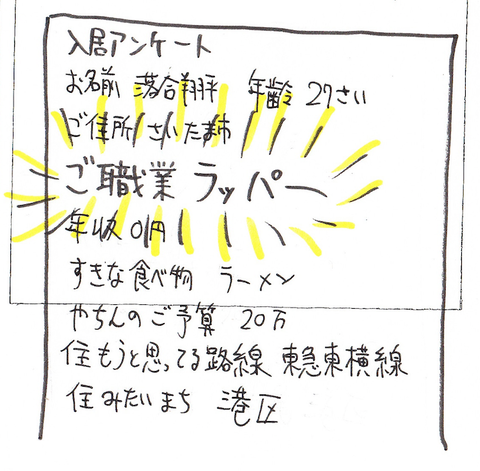 入居アンケート
お名前 落合翔平 年齢 27さい
ご住所 さいたま市
ご職業 ラッパー
年収 0円
すきな食べ物 ラーメン
やちんのご予算 20万
住もうと思ってる路線 東急東横線
住みたいまち 港区